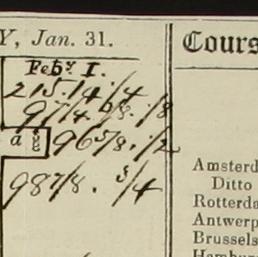 Y, Jan. 31.
Cours
Feby 1.
215.14 1/4
97 1/4. 6/8. 1/8
a
96 5/8. 1/2
98 7/8. 3/4
Amsterd
Ditto
Rotterda
Antwerp
Brussels
Hambur